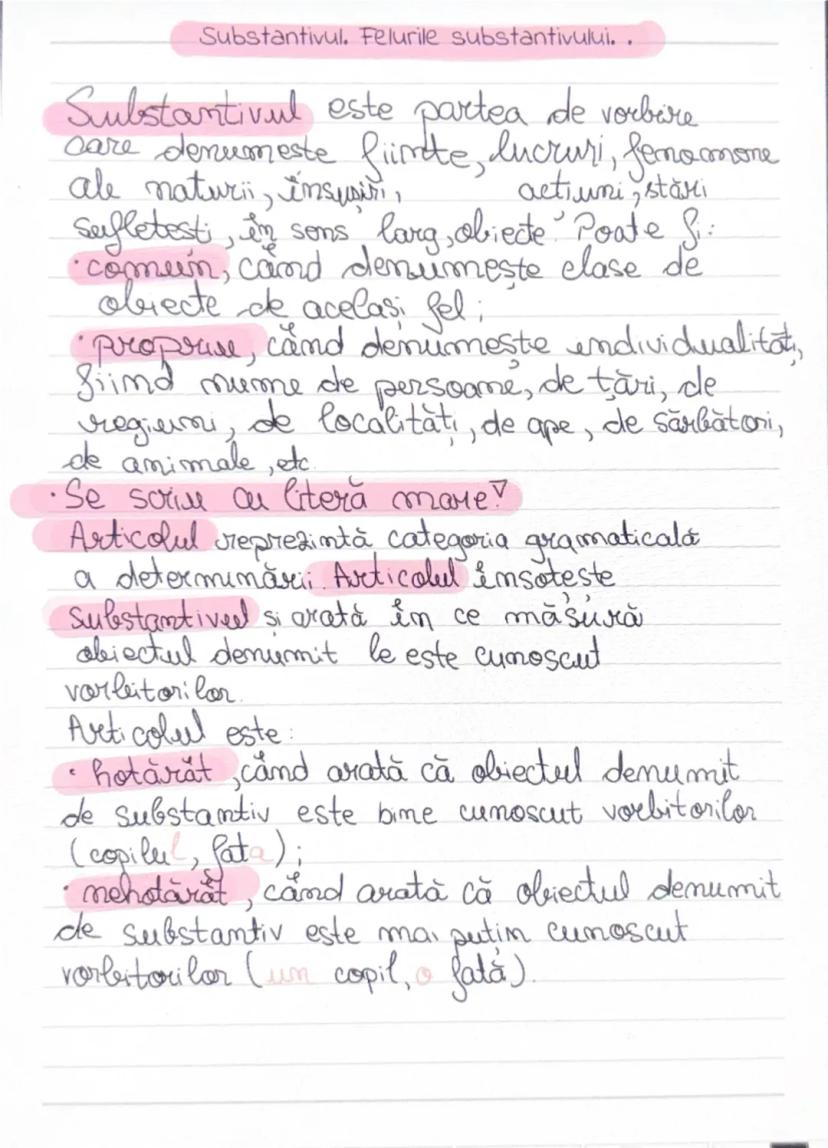 Substantivul. Felurile substantivului. .
Substantivul este partea de vorbire
care denumește ființe, lucruri, fenomene
ale naturii, însușiri, acțiuni, stări
sufletești, în sens larg, obiecte. Poate fi:
· comun, când denumește clase de
obiecte de același fel;
· propriu, când denumește individualități,
fiind nume de persoane, de țări, de
regiuni, de localități, de ape, de sărbători,
de animale, etc.
· Se scriu cu literă mare!
Articolul reprezintă categoria gramaticală
a determinării. Articolul însoțește
substantivul și arată în ce măsură
obiectul denumit le este cunoscut
vorbitorilor.
Articolul este:
· hotărât, când arată că obiectul denumit
de substantiv este bine cunoscut vorbitorilor
(copilul, fata);
· nehotărât, când arată că obiectul denumit
de substantiv este mai puțin cunoscut
vorbitorilor (un copil, o fată).